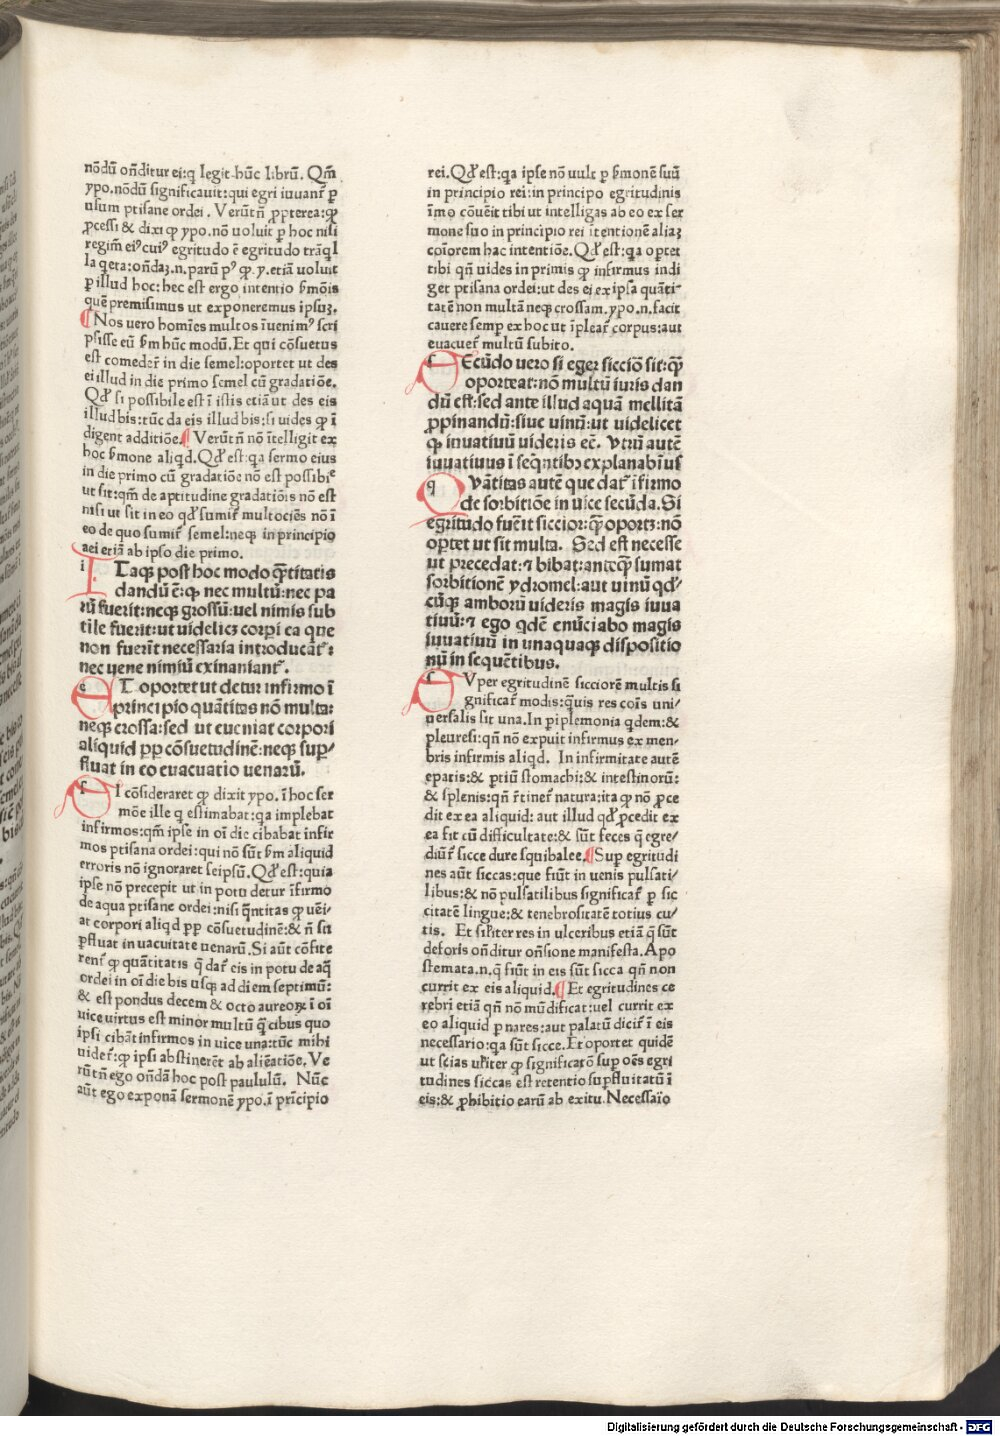 nōdū oñditur ei:q legit hūc librū. Qm̄
ypo.nōdū significauit:qui egri iuuant̄ ꝑ
usum ptisane ordei. Verūtn̄ ꝓpterea:ꝙ
ꝓcessi & dixi ꝙ ypo.nō uoluit ꝑ hoc nisi
regim̄ ei⁹ cui⁹ egritudo ē egritudo trāqͥl
la q̄eta:oñdaꝫ.n.parū pꝰ ꝙ.y.etiā uoluit
ꝑ illud hoc:hec est ergo intentio ẜmōis
quē premisimus ut exponeremus ipsuꝫ.
¶Nos uero homīes multos īuenimꝰ scri
psisse eū ẜm hūc modū.Et qui cōsuetus
est comeder̄ in die semel:oportet ut des
ei illud in die primo semel cū gradatiōe.
Qd̛ si possibile est ī istis etiā ut des eis
illud bis:tūc da eis illud bis:si uides ꝙ ī
digent additiōe.¶Verūtn̄ nō ītelligit ex
hoc ẜmone aliqd.Qd̛ est:qa sermo eius
in die primo cū gradatiōe nō est possibiᵉ
ut sit:qm̄ de aptitudine gradatiōis nō est
nisi ut sit in eo qd̛ sumit̄ multociēs nō ī
eo de quo sumit̄ semel:neqꝫ in principio
aei etiā ab ipso die primo.
iTaqꝫ post hoc modo q̄titatis
dandū ē:ꝙ nec multū:nec pa
rū fuerit:neqꝫ grossū:uel nimis sub
tile fuerit:ut uidelicꝫ corpi ea que
non fuerīt necessaria introducāt̄:
nec uene nimiū exinaniant̄.
eT oportet ut detur infirmo ī
principio quātitas nō multa:
neqꝫ crossa:sed ut eueniat corpori
aliquid ꝓp cōsuetudinē:neqꝫ suꝑ/
fluat in eo euacuatio uenarū.
sI cōsideraret ꝙ dixit ypo.ī hoc ser
mōe ille q estimabat:qa implebat
infirmos:qm̄ ipse in oī die cibabat infir
mos ptisana ordei:qui nō sūt ẜm aliquid
erroris nō ignoraret seipsū.Qd̛ est:quia
ipse nō precepit ut in potu detur īfirmo
de aqua ptisane ordei:nisi q̄ntitas ꝙ uēi/
at corpori aliqd ꝓp cōsuetudinē:& n̄ su
ꝑfluat in uacuitate uenarū.Si aūt cōfite
rent̄ ꝙ quātitatis q̄ dat̄ eis in potu de aq̄
ordei in oī die bis usqꝫ ad diem septimū:
& est pondus decem & octo aureoꝝ ī oī
uice uirtus est minor multū q̄ cibus quo
ipsi cibāt infirmos in uice una:tūc mihi
uidet̄:ꝙ ipsi abstinerēt ab aliēatiōe.Ve
rūtn̄ ego oñdā hoc post paululū. Nūc
aūt ego exponā sermonē ypo.ī prīcipio
rei.Qd̛ est:qa ipse nō uult ꝑ ẜmonē suū
in principio rei:in principo egritudinis
īmo cōuēit tibi ut intelligas ab eo ex ser
mone suo in principio rei itentionē aliaꝫ
coīorem hac intentiōe.Qd̛ est:qa oꝑtet
tibi qn̄ uides in primis ꝙ infirmus indi
get ptisana ordei:ut des ei ex ipsa quāti/
tatē non multā neqꝫ crossam.ypo.n.facit
cauere semꝑ ex hoc ut īpleat̄ corpus:aut
euacuet̄ multū subito.
sEcūdo uero si eger siccior̄ sit:ꝙ
oporteat:nō multū iuris dan
dū est:sed ante illud aquā mellitā
ꝓpinandū:siue uinū:ut uidelicet
ꝙ iuuatiuū uideris eē. Vtrū autē
iuuatiuus ī seqntibꝫ explanabīus
qVātitas autē que dat̄ īfirmo
de sorbitiōe in uice secūda.Si
egritudo fuerit siccior:ꝙ oportꝫ:nō
oꝑtet ut sit multa. Sed est necesse
ut precedat:⁊ bibat:anteqꝫ sumat
sorbitionē ydromel:aut uinū qd̛/
cūqꝫ amborū uideris magis iuua
tiuū:⁊ ego qdē enūciabo magis
iuuatiuū in unaquaqꝫ dispositio
nū in sequētibus.
sVper egritudinē sicciorē multis si
gnificat̄ modis:q̄uis res coīs uni/
uersalis sit una.In ꝑiplemonia qdem:&
pleuresi:qn̄ nō expuit infirmus ex men/
bris infirmis aliqd. In infirmitate autē
epatis:& ꝑtiū stomachi:& intestinorū:
& splenis:qn̄ r̄tinet̄ natura:ita ꝙ nō ꝓce
dit ex ea aliquid: aut illud qd̛ ꝓcedit ex
ea fit cū difficultate:& sūt feces q̄ egre/
diūt̄ sicce dure squibalee.¶Suꝑ egritudi
nes aūt siccas:que fiūt in uenis pulsati/
libus:& nō pulsatilibus significat̄ ꝑ sic
citatē lingue:& tenebrositatē totius cu/
tis. Et sil̛iter res in ulceribus etiā q̄ sūt
deforis oñditur oñsione manifesta.Apo
stemata.n.q̄ fiūt in eis sūt sicca qn̄ non
currit ex eis aliquid.¶Et egritudines ce
rebri etiā qn̄ nō mūdificat:uel currit ex
eo aliquid ꝑ nares:aut palatū dicit̄ ī eis
necessario:qa sūt sicce.Et oportet quidē
ut scias ul̛iter ꝙ significatō suꝑ oēs egri
tudines siccas est retentio suꝑfluitatū ī
eis:& ꝓhibitio earū ab exitu.Necessaīo
Digitalisierung gefördert durch die Deutsche Forschungsgemeinschaft - DFG